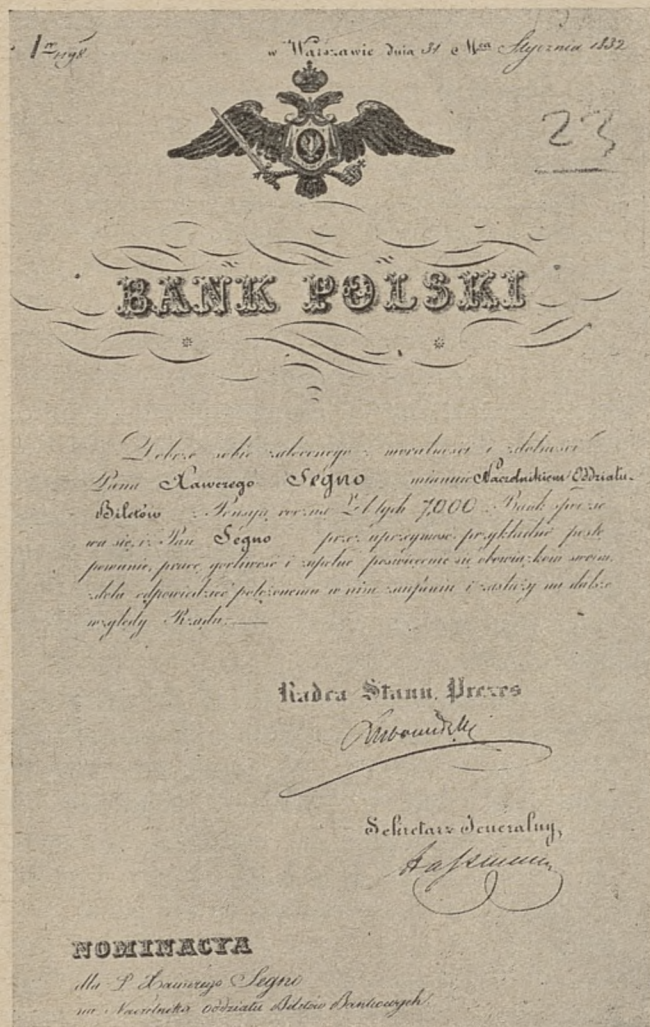 w Warszawie dnia 31 Mca Stycznia 1832
23
BANK POLSKI
Dobrze sobie zaleconego z moralności i zdolności
Pana Xawerego Segno mianuie Naczelnikiem Oddziału
Biletów Pensyą roczną Złotych 7,000. Bank spodze
wa się, iż Pan Segno przez uprzeymość, przykładne postę
powanie, pracę, gorliwość i zupełne poświęcenie się obowiązkom swoim,
zdoła odpowiedzieć położonemu w nim zaufaniu i zasłuży na dalsze
względy Rządu.
Radca Stanu, Prezes
Sekretarz Jeneralny,
NOMINACYA
dla P. Xawerego Segno
na Naczelnika Oddziału Biletów Bankowych